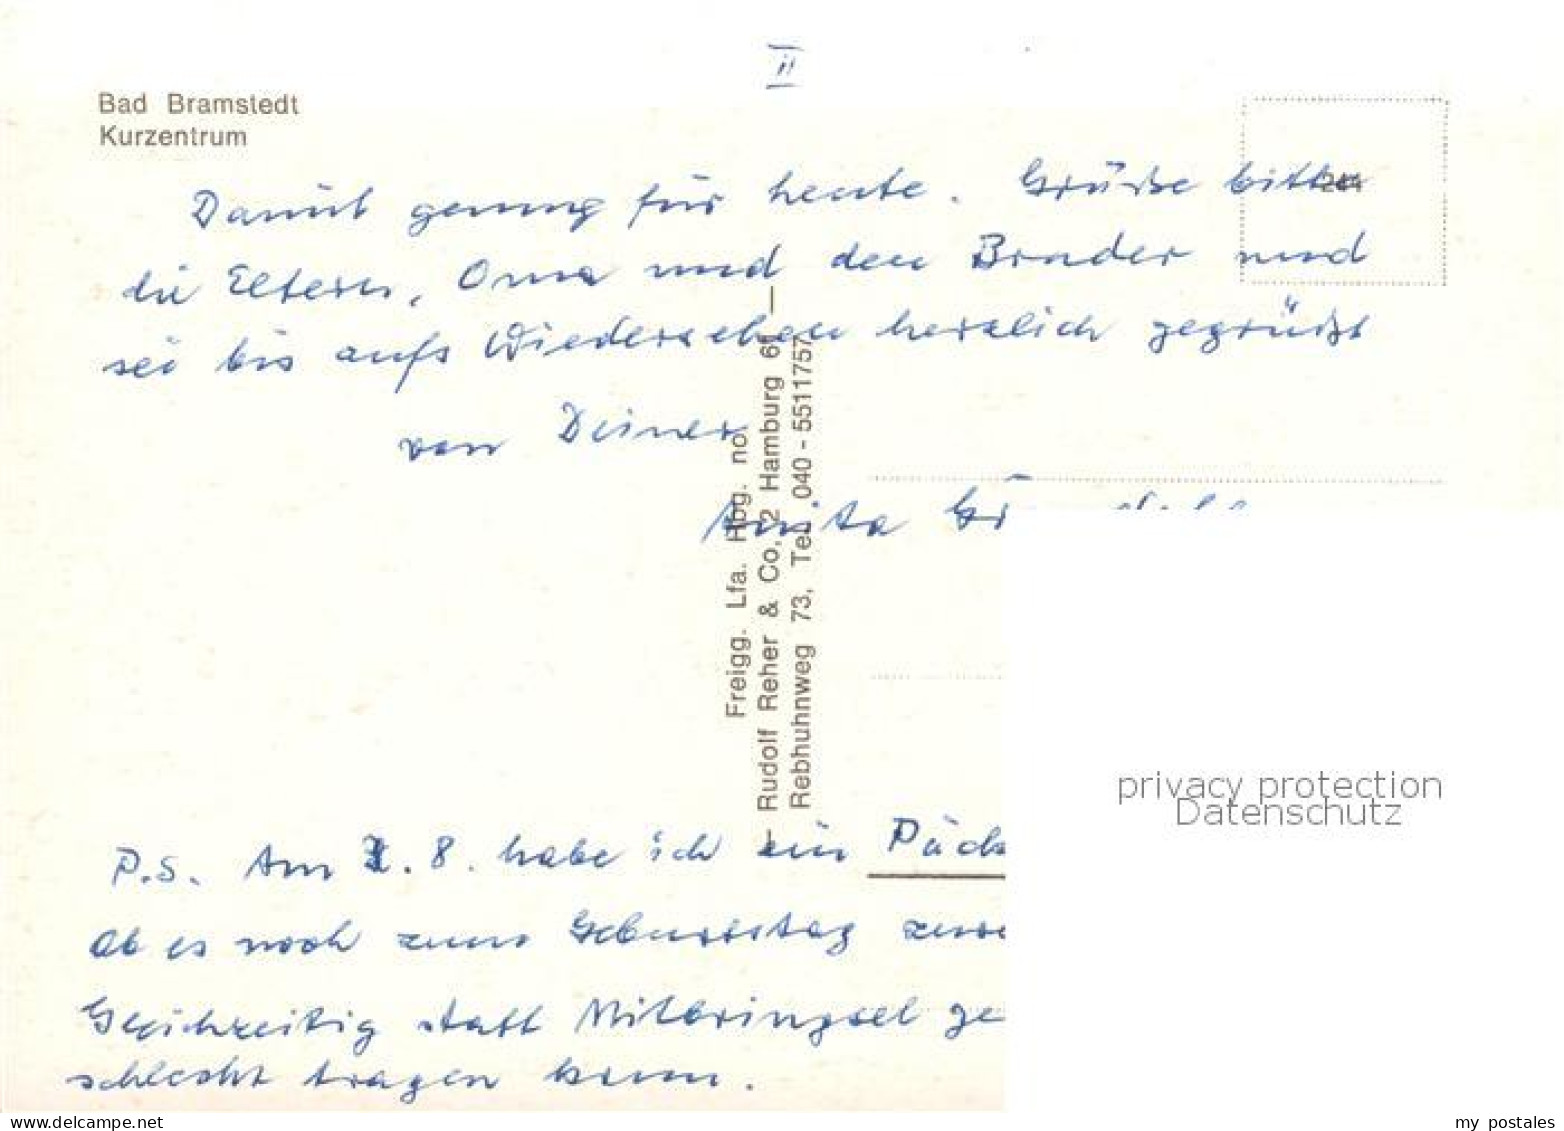 II
Bad Bramstedt
Kurzentrum
Damit genung für heute. Grüße bitte
244
die Eltern, Oma und den Bruder und
sei bis aufs Wiedersehen herzlich gegrüßt
von Deiner
Anita
Freigg. Lfa. Hbg. no.
Rudolf Reher & Co, 2 Hamburg 61
Rebhuhnweg 73, Tel. 040 - 5511757
privacy protection
Datenschutz
P.S. Am 1. 8. habe ich ein
ob es noch zum Geburtstag
Gleichzeitig statt Mitbringsel
schlecht tragen kann.
www.delcampe.net
my postales